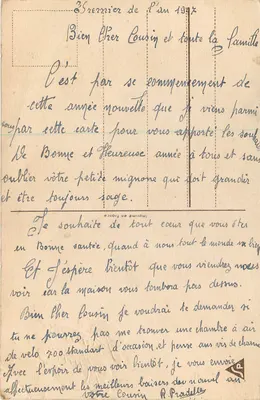 Premier de l'an 1947
Bien Cher Cousin et toute la famille
C'est par se commencement de
cette année nouvelle que je viens parmi
par cette carte pour vous apporté les
De Bonne et Heureuse année à tous et sans
oublier votre petite mignone qui doit grandir
et être toujours sage.
Je souhaite de tout cœur que vous êtes
en Bonne santée, quand à nous tout le monde va bien
Et J'éspère bientôt que vous viendrez nous
voir car la maison vous tombera pas dessus.
Bien Cher Cousin, Je voudrais te demander si
tu ne pourrez pas me trouver une chambre à air
de vélo 700 standart d'occasion, et pense aux vis de
Avec l'espoir de vous voir bientôt, je vous envoie
affectueusement les meilleurs baisers des nouvel an
votre Cousin R. Pradelle